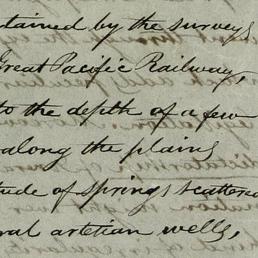 tained by the surveys
Great Pacific Railway,
to the depth of a few
along the plains
tude of springs scattered
ral artetian wells,